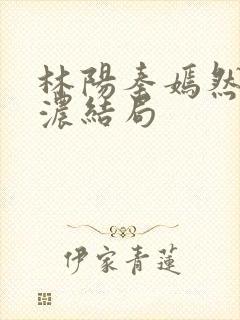 林陽秦嫣然
濃結局
伊家青蓮